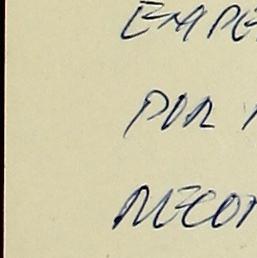 EMPE
POR
RECON